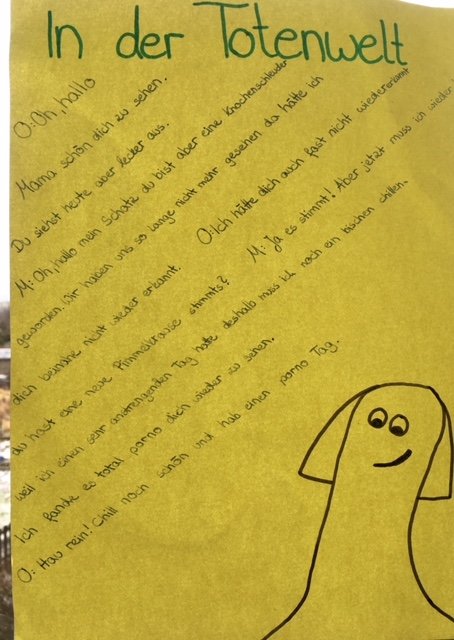 In der Totenwelt
O: Oh, hallo
Mama schön dich zu sehen.
Du siehst heute aber lecker aus.
M: Oh, hallo mein Schatz du bist aber eine Knochenschleuder
geworden. Wir haben uns so lange nicht mehr gesehen da hätte ich
dich beinahe nicht wieder erkannt. O: Ich hätte dich auch fast nicht wiedererkannt
du hast eine neue stimmts? M: Ja es stimmt! Aber jetzt muss ich wieder
weil ich einen sehr anstrengenden Tag hatte deshalb muss ich noch ein bischen chillen.
Ich fande es total porno dich wieder zu sehen.
O: Hau rein! Chill noch schön und hab einen porno Tag.